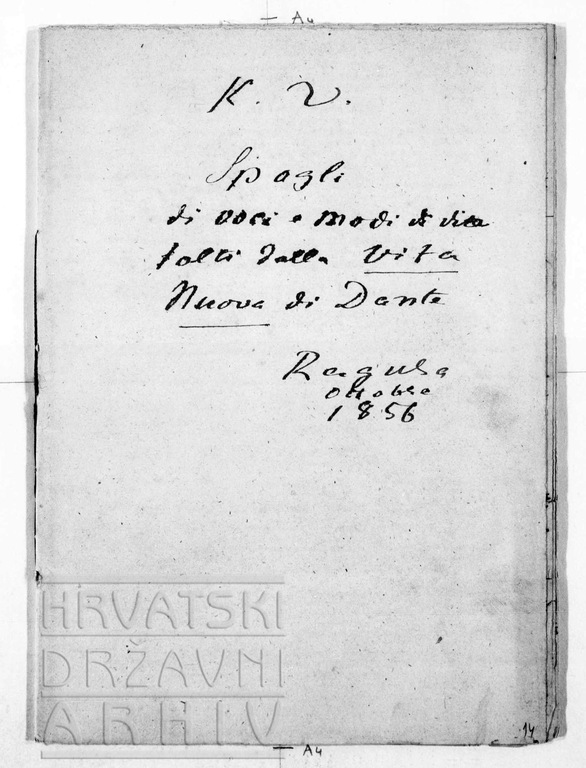 A4
K. V.
Spogli
di voci e modi di dire
tolti dalla Vita
Nuova di Dante
Ragusa
ottobre
1856
HRVATSKI
DRŽAVNI
ARHIV
14
A4